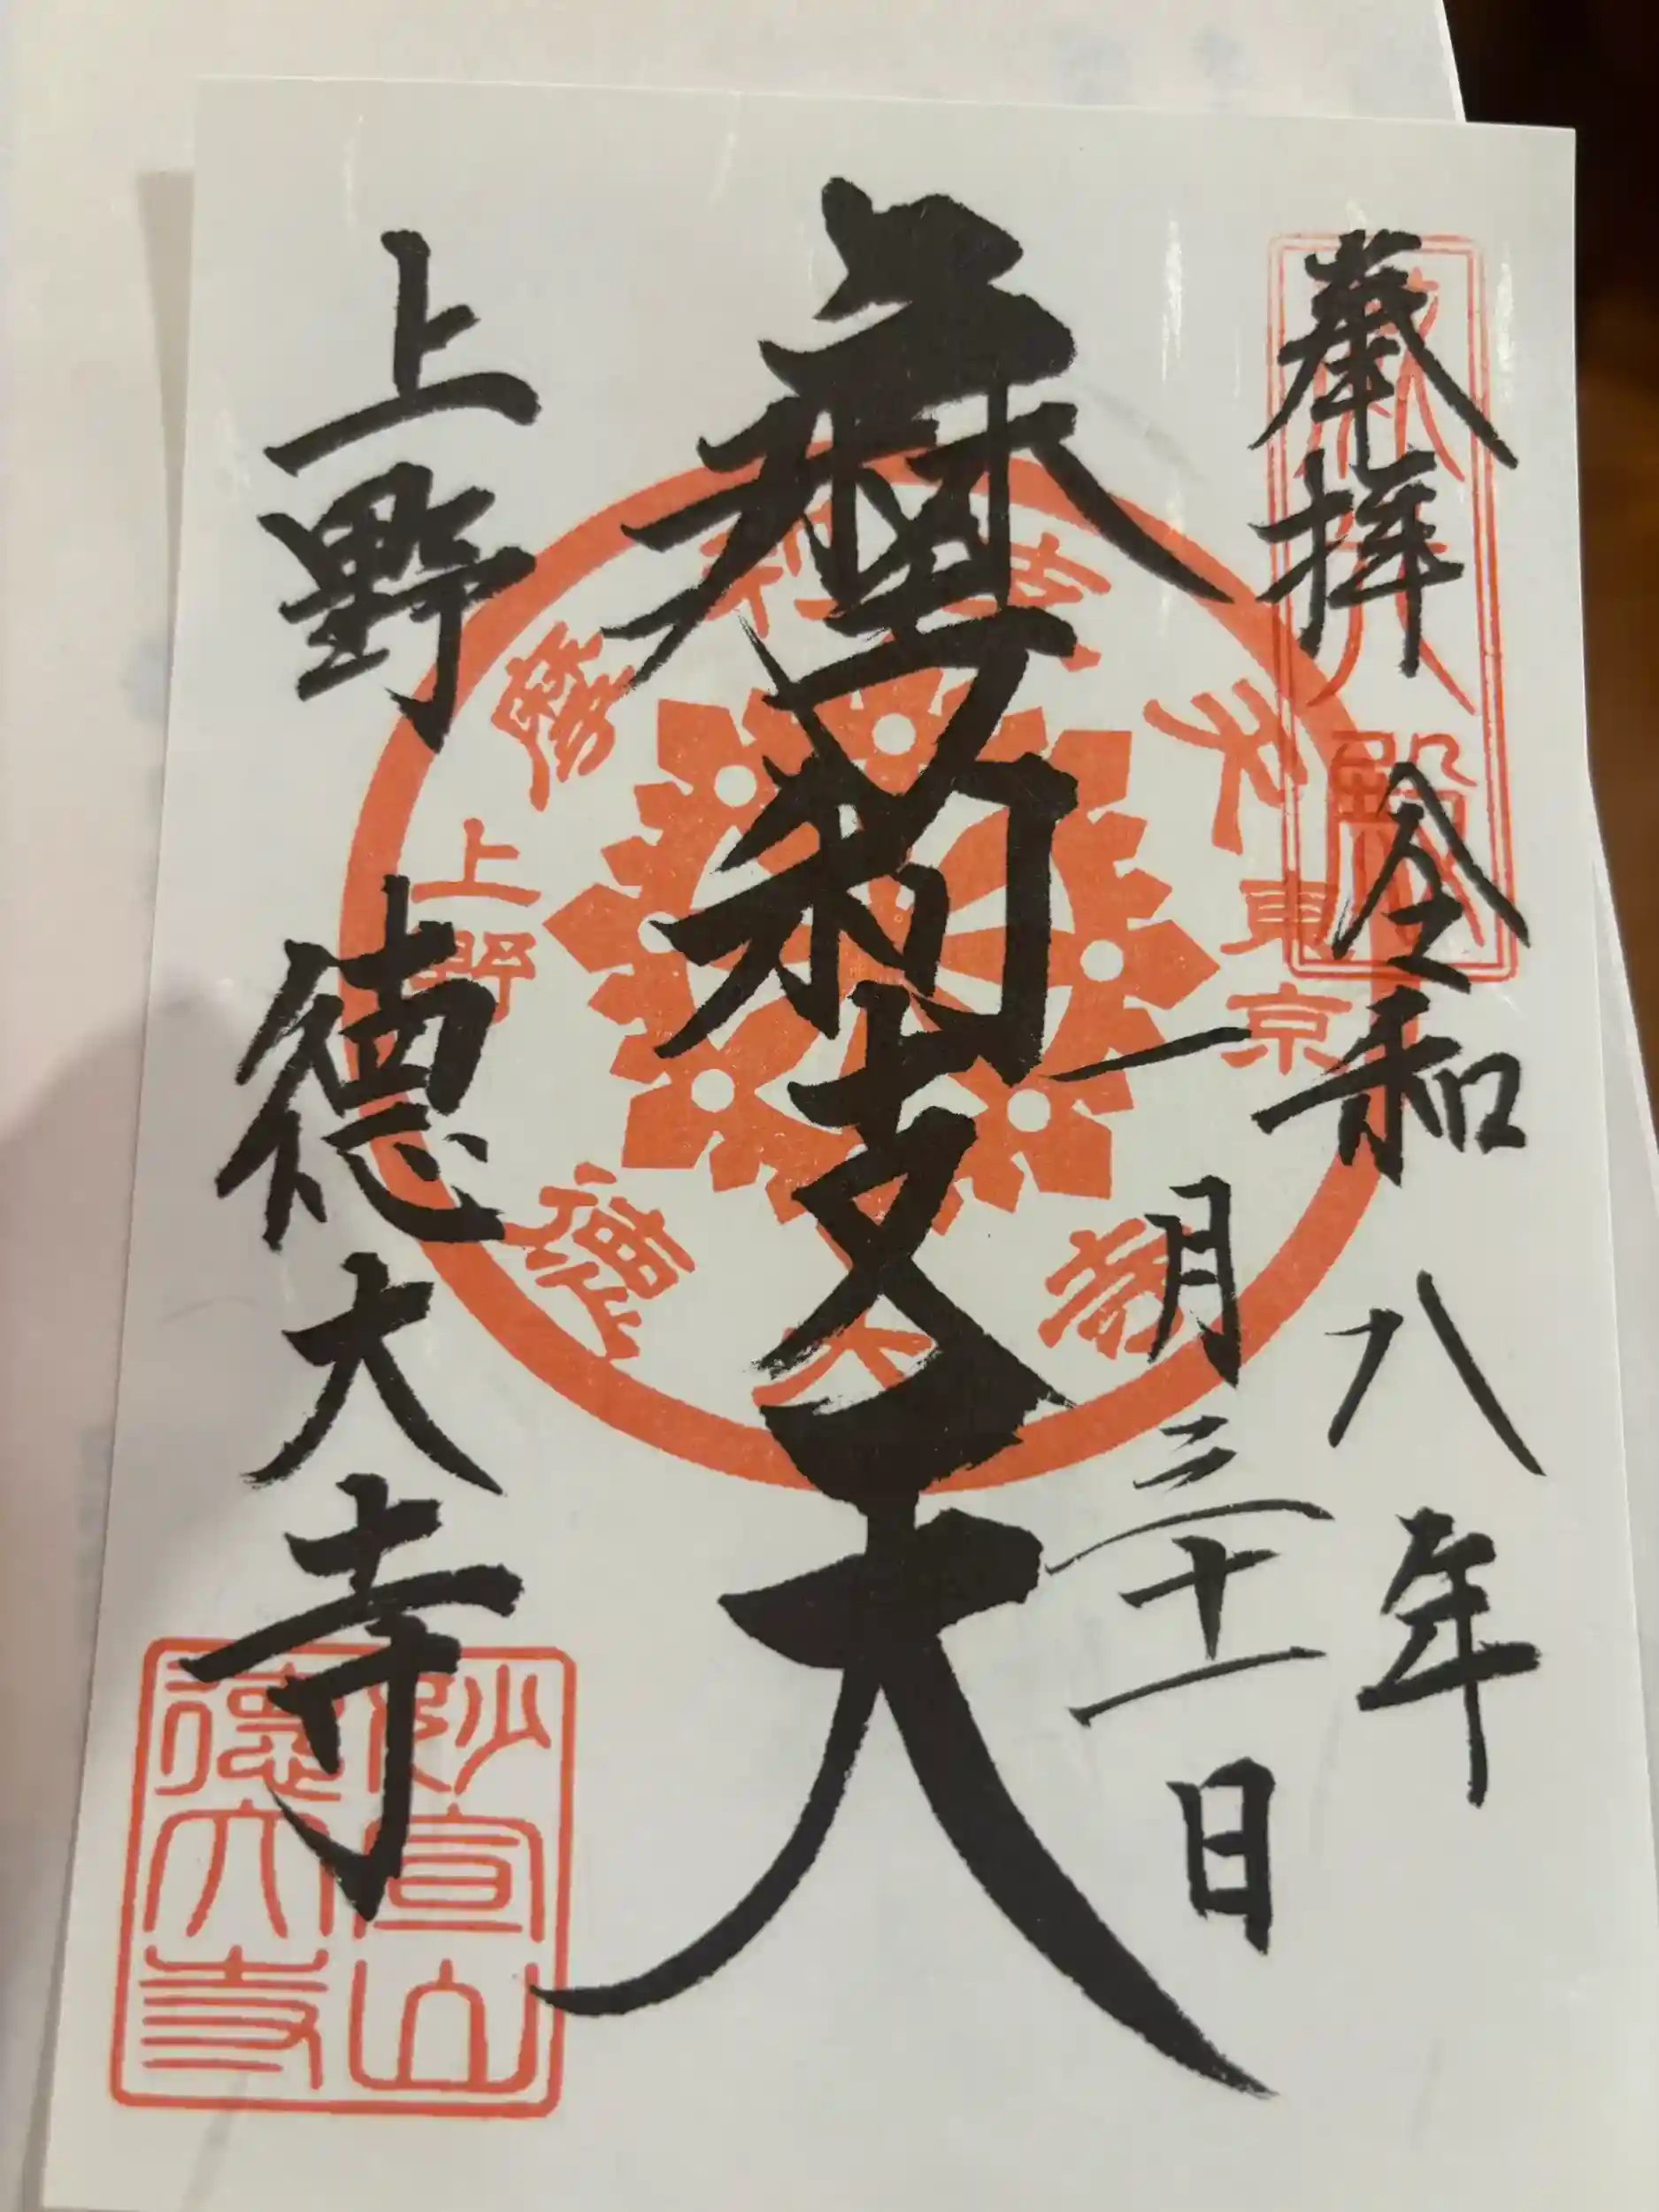 奉拝 令和八年
一月三十一日
摩利支天
上野 徳大寺
摩利支天
東京
上野
德大寺
妙宣山
德大寺